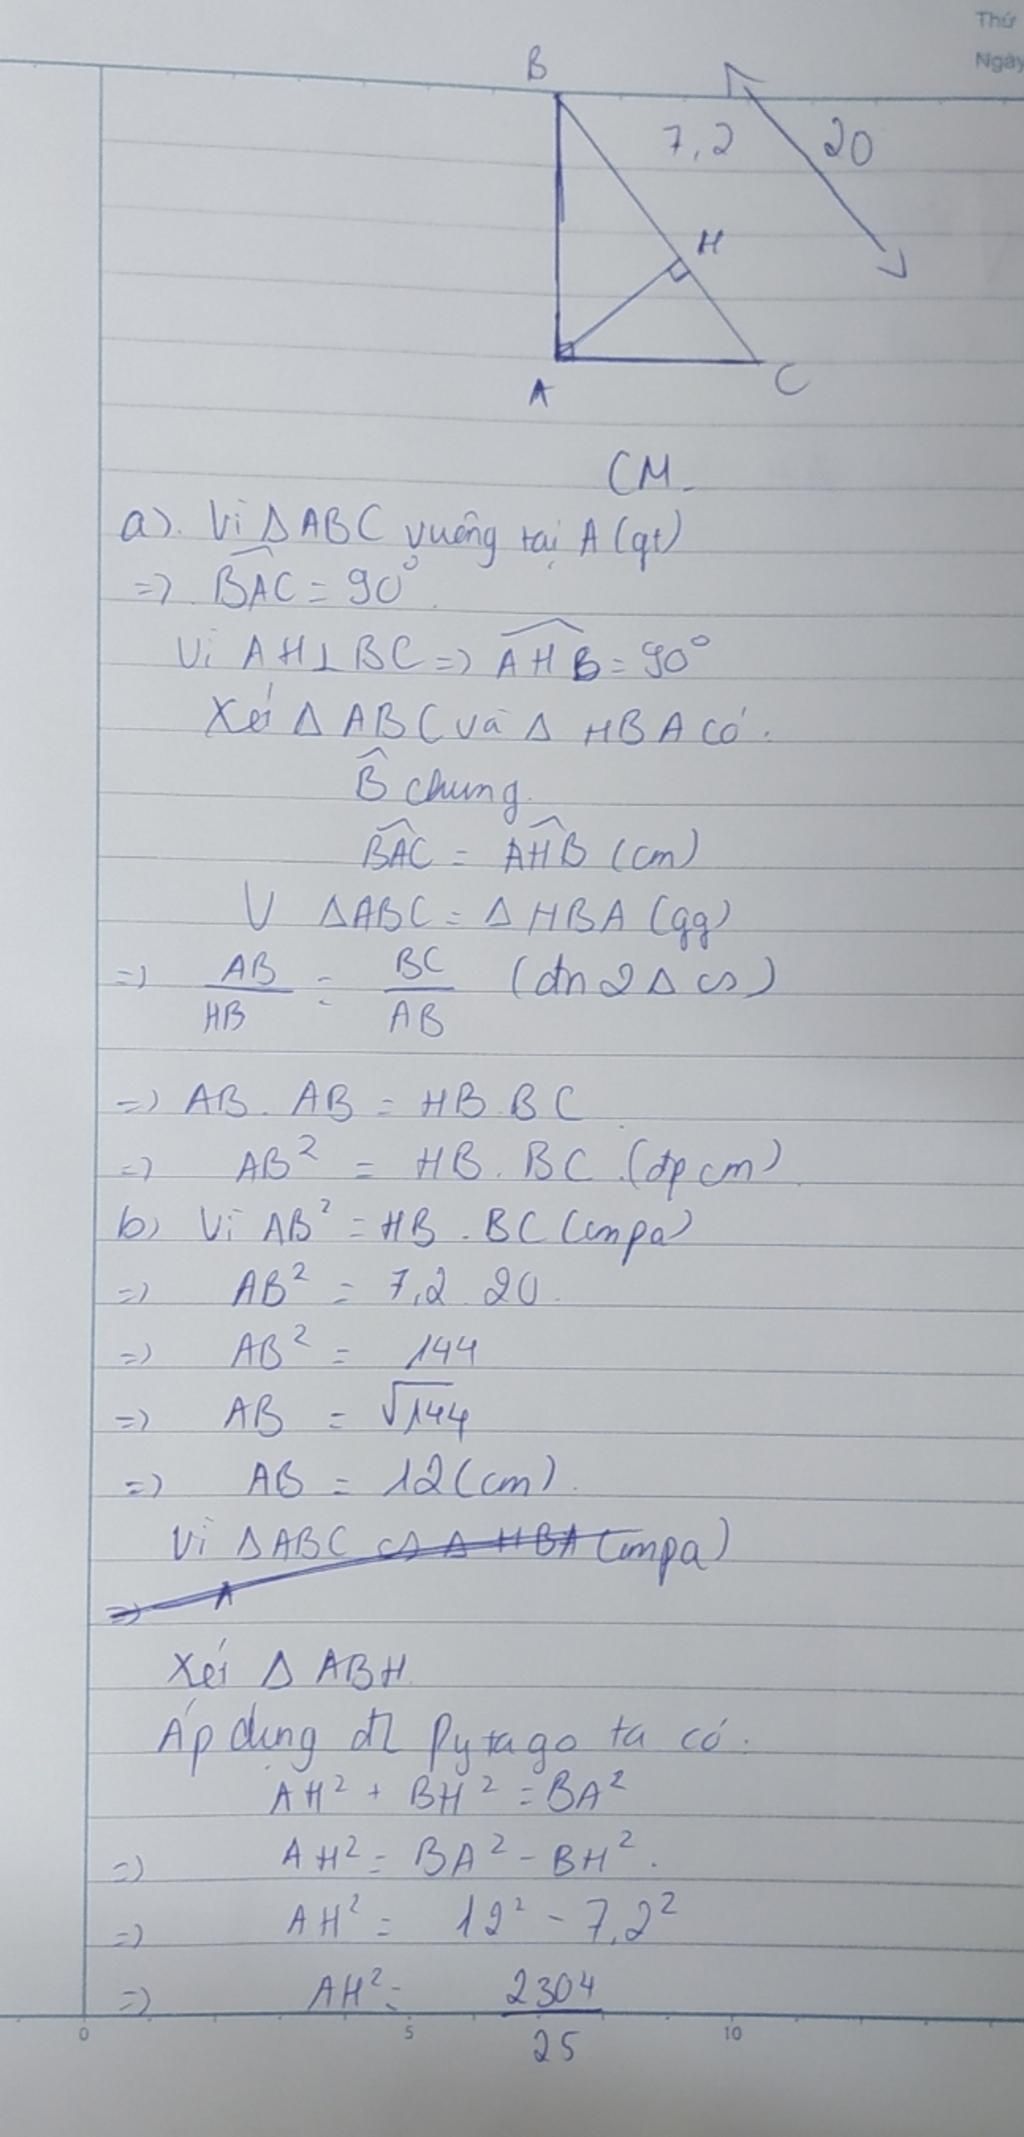 Thứ
Ngày
B
7,2
20
H
A
C
CM
a). Vì Δ ABC vuông tại A (gt)
=> BAC = 90°
Vì AH⊥BC => AHB = 90°
Xét Δ ABC và Δ HBA có.
B̂ chung
BAC = AHB (cm)
V ΔABC = Δ HBA (gg)
=> AB/HB = BC/AB (đn 2 Δ ᔕ)
=> AB . AB = HB . BC
=> AB² = HB . BC (đpcm)
b) Vì AB² = HB . BC (cmpa)
=> AB² = 7,2 20
=> AB² = 144
=> AB = √144
=> AB = 12 (cm).
Vì ΔABC ᔕ Δ HBA (cmpa)
=> A
Xét Δ ABH
Áp dụng đl Pytago ta có.
AH² + BH² = BA²
=> AH² = BA² - BH².
=> AH² = 12² - 7,2²
=> AH² = 2304/25
0 5 10